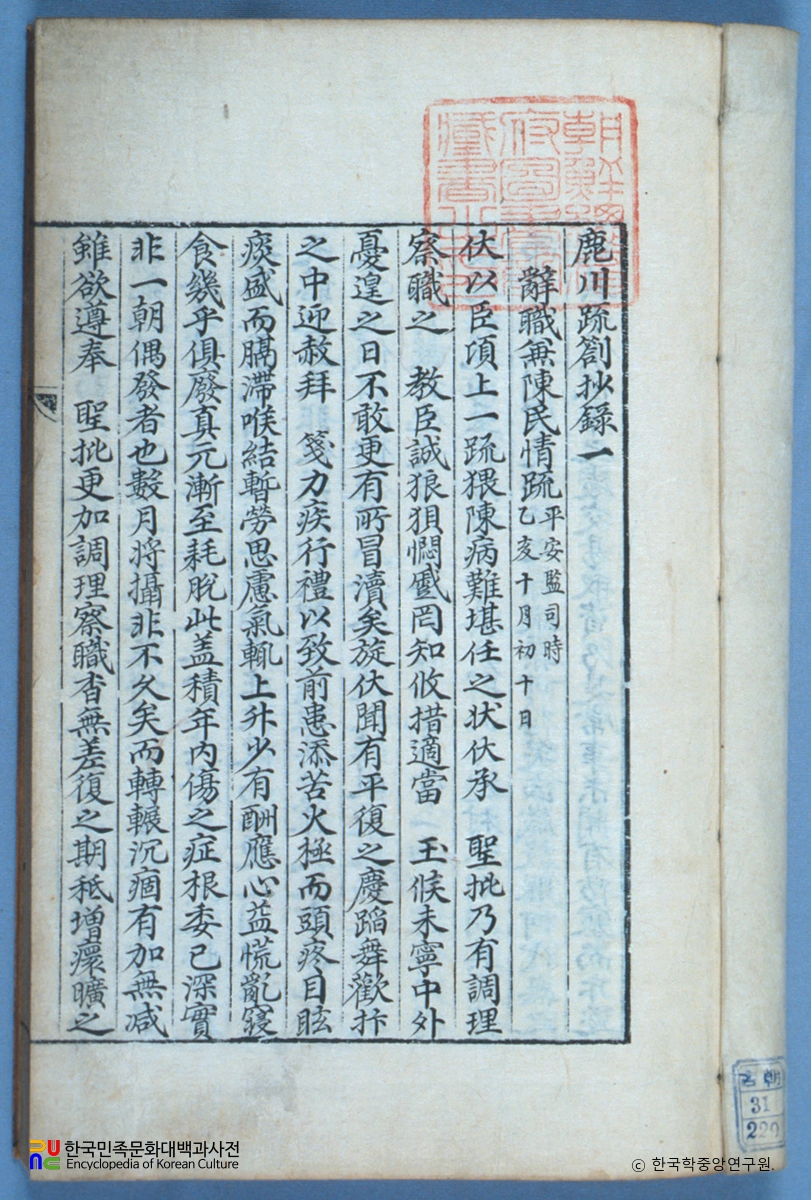 鹿川疏箚抄錄一
辭職兼陳民情疏 平安監司時 乙亥十月初十日
伏以臣項上一疏猥陳病難堪任之状伏承 聖批乃有調理
察職之 教臣誠狼狽悶蹙罔知攸措適當 玉候未寧中外
憂遑之日不敢更有所冒瀆矣旋伏聞有平復之慶蹈舞歡抃
之中迎赦拜 箋力疾行禮以致前患添苦火極而頭疼目眩
痰盛而膈滯喉結暫勞思慮氣輒上升少有酬應心益慌亂寢
食幾乎俱廢真元漸至耗脫此盖積年内傷之症根委已深實
非一朝偶發者也數月將攝非不久矣而轉輾沉痼有加無减
雖欲遵奉 聖批更加調理察職杳無差復之期秪增癏曠之
朝鮮總督府圖書館藏書之印
朝古
31
229
한국민족문화대백과사전
Encyclopedia of Korean Culture
ⓒ 한국학중앙연구원.